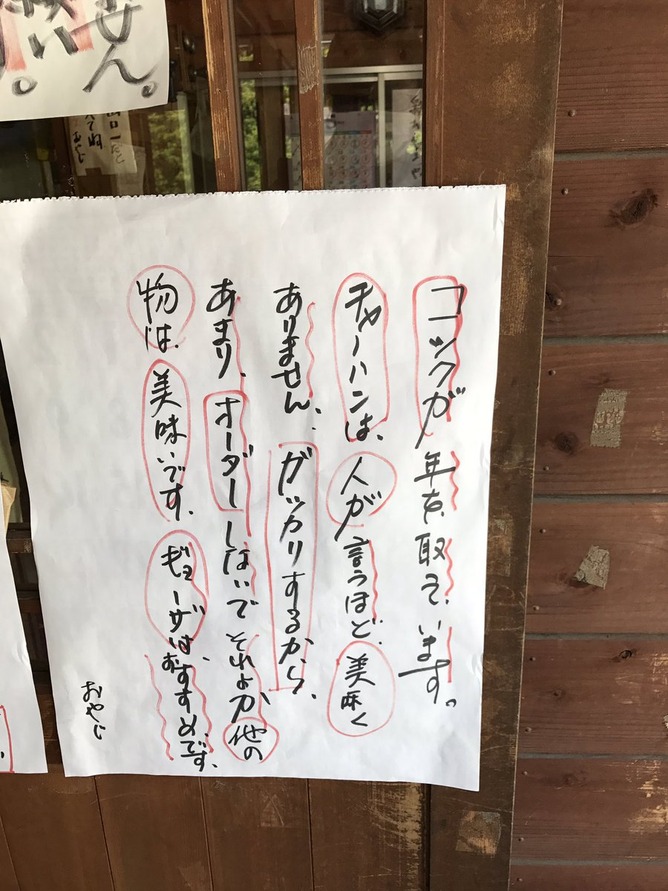 コックが年を取っています。
チャーハンは、人が言うほど、美味く
ありません、ガッカリするから、
あまり、オーダーしないでそれよか他の
物は、美味いです。ギョーザは、おすすめです、
おやじ
せん。